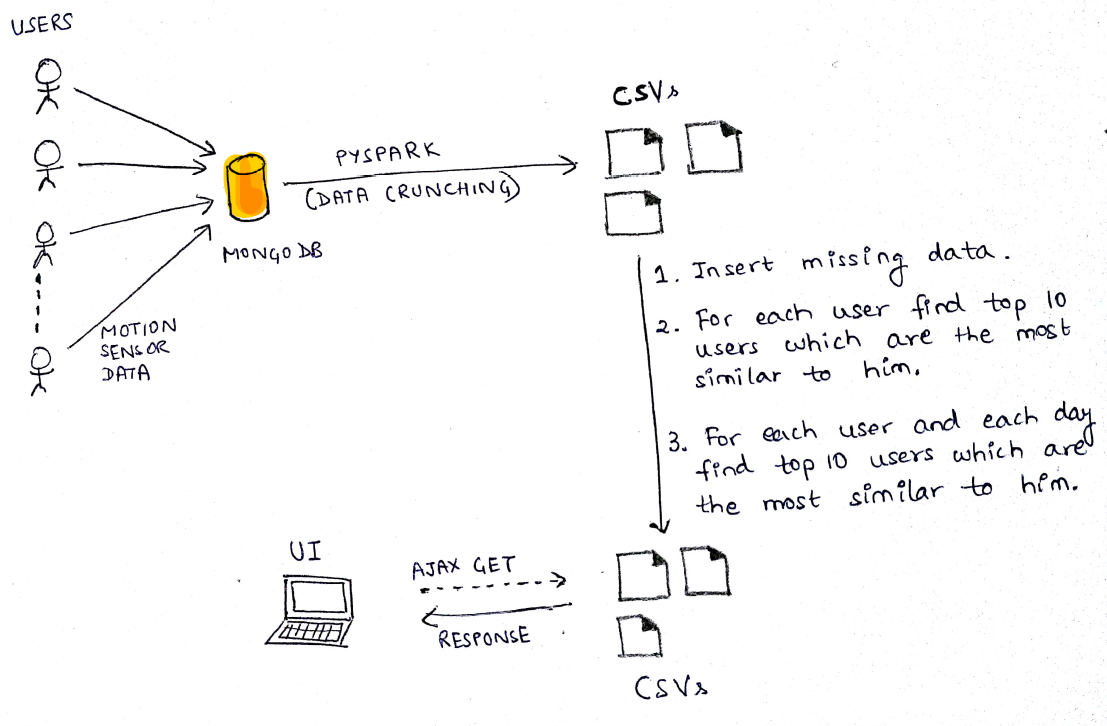 USERS
CSVs
PYSPARK
(DATA CRUNCHING)
MONGO DB
MOTION
SENSOR
DATA
1. Insert missing data.
2. For each user find top 10
users which are the most
similar to him.
3. For each user and each day
find top 10 users which are
the most similar to him.
UI
AJAX GET
RESPONSE
CSVs